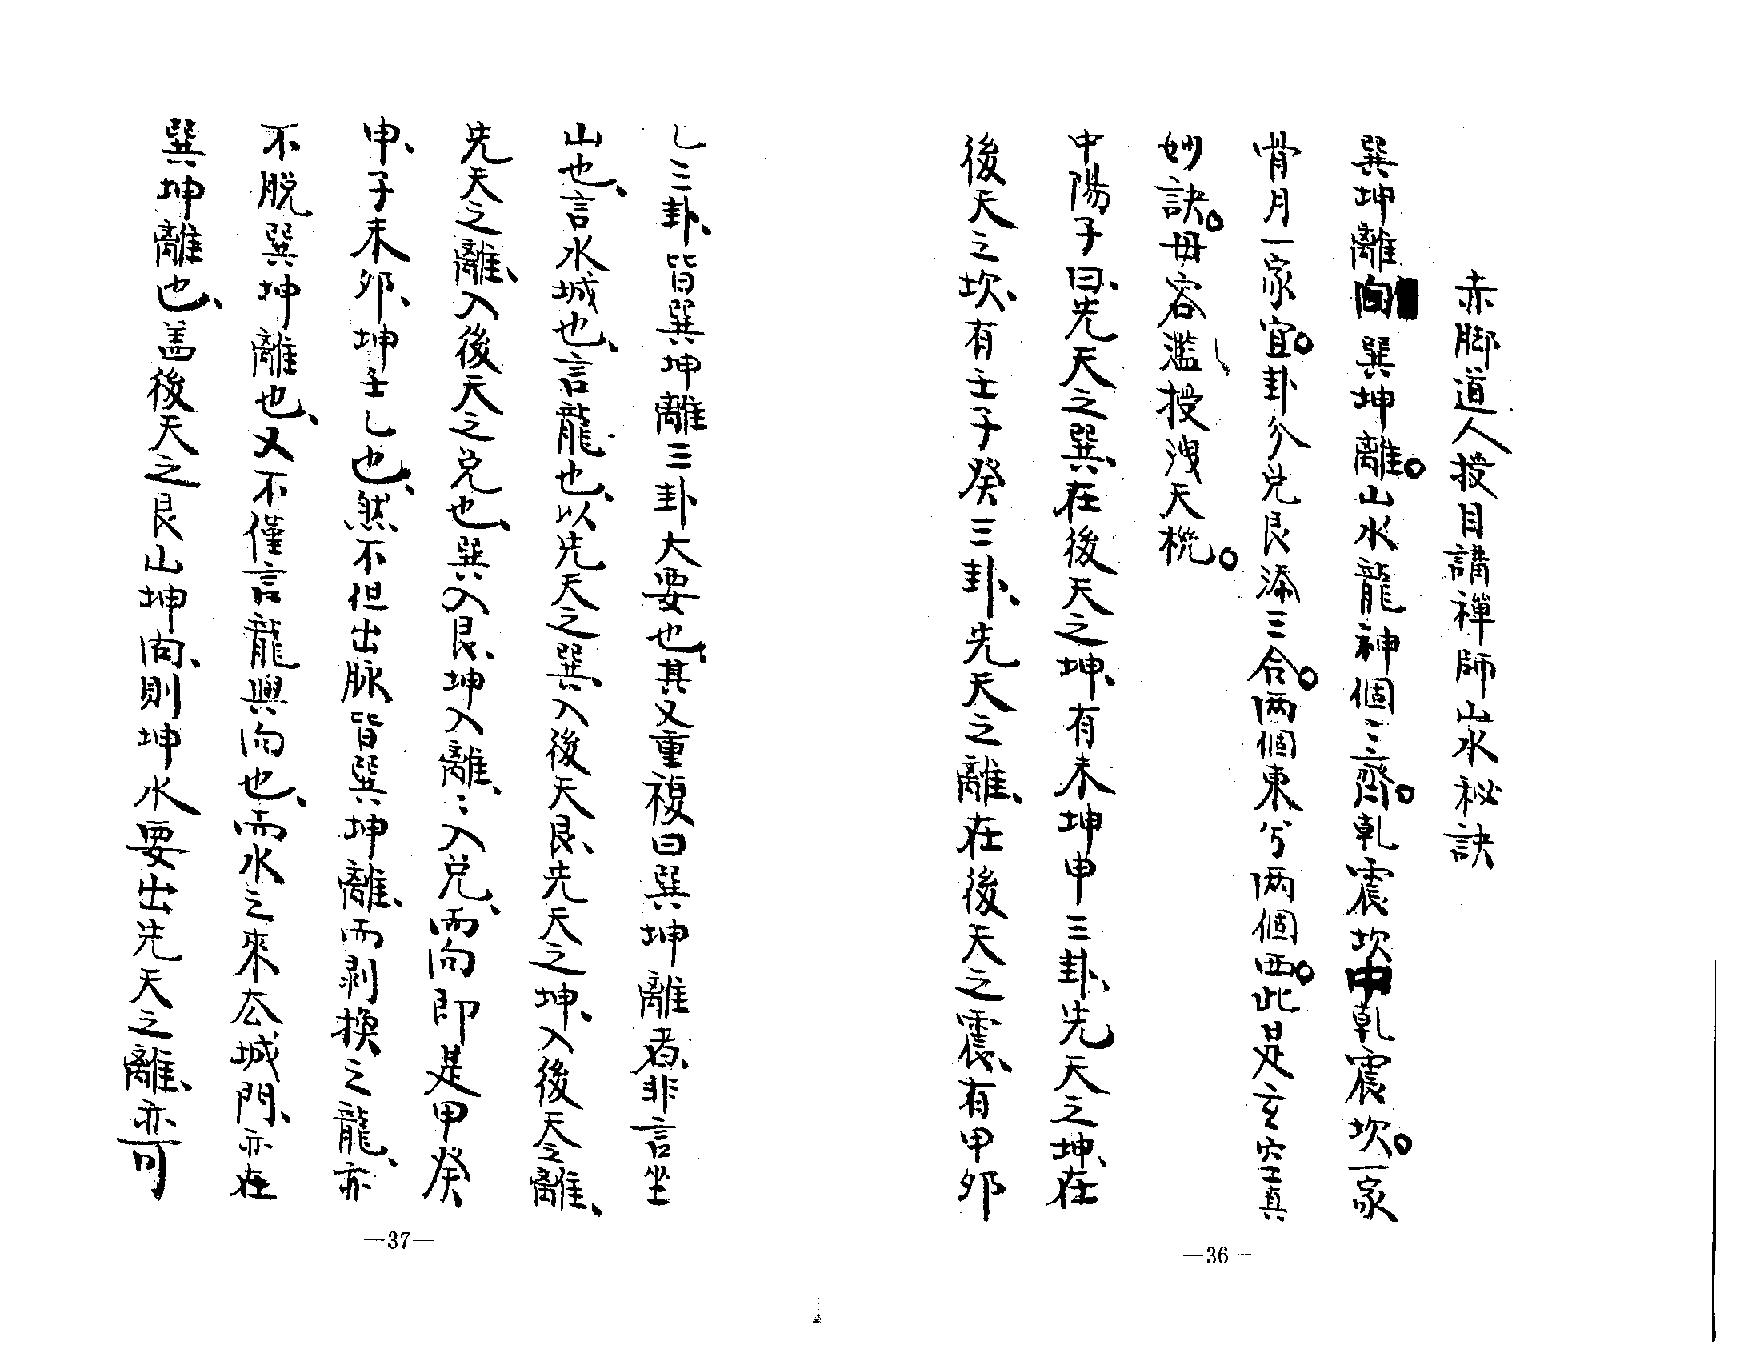 赤脚道人授目講禪師山水秘訣
巽坤離向巽坤離。山水龍神個三三齊。乾震坎中乾震坎。一家
骨月一家宜。卦分兑艮添三合。两個東兮两個西。此是玄空真
妙訣。毋容濫授洩天機。
中陽子曰、先天之巽、在後天之坤、有未坤申三卦、先天之坤、在
後天之坎、有壬子癸三卦、先天之離、在後天之震、有甲卯
乙三卦、皆巽坤離三卦大要也、其又重複曰巽坤離者、非言坐
山也、言水城也、言龍也、以先天之巽、入後天艮、先天之坤、入後天之離、
先天之離、入後天之兑也、巽入艮、坤入離、離入兑、而向即是甲癸
申、子未卯、坤壬乙也、然不但出脉皆巽坤離、而剥換之龍、亦
不脱巽坤離也、又不僅言龍與向也、而水之來去城門、亦在
巽坤離也、盖後天之艮山坤向、則坤水要出先天之離、亦可
—37—
—36—